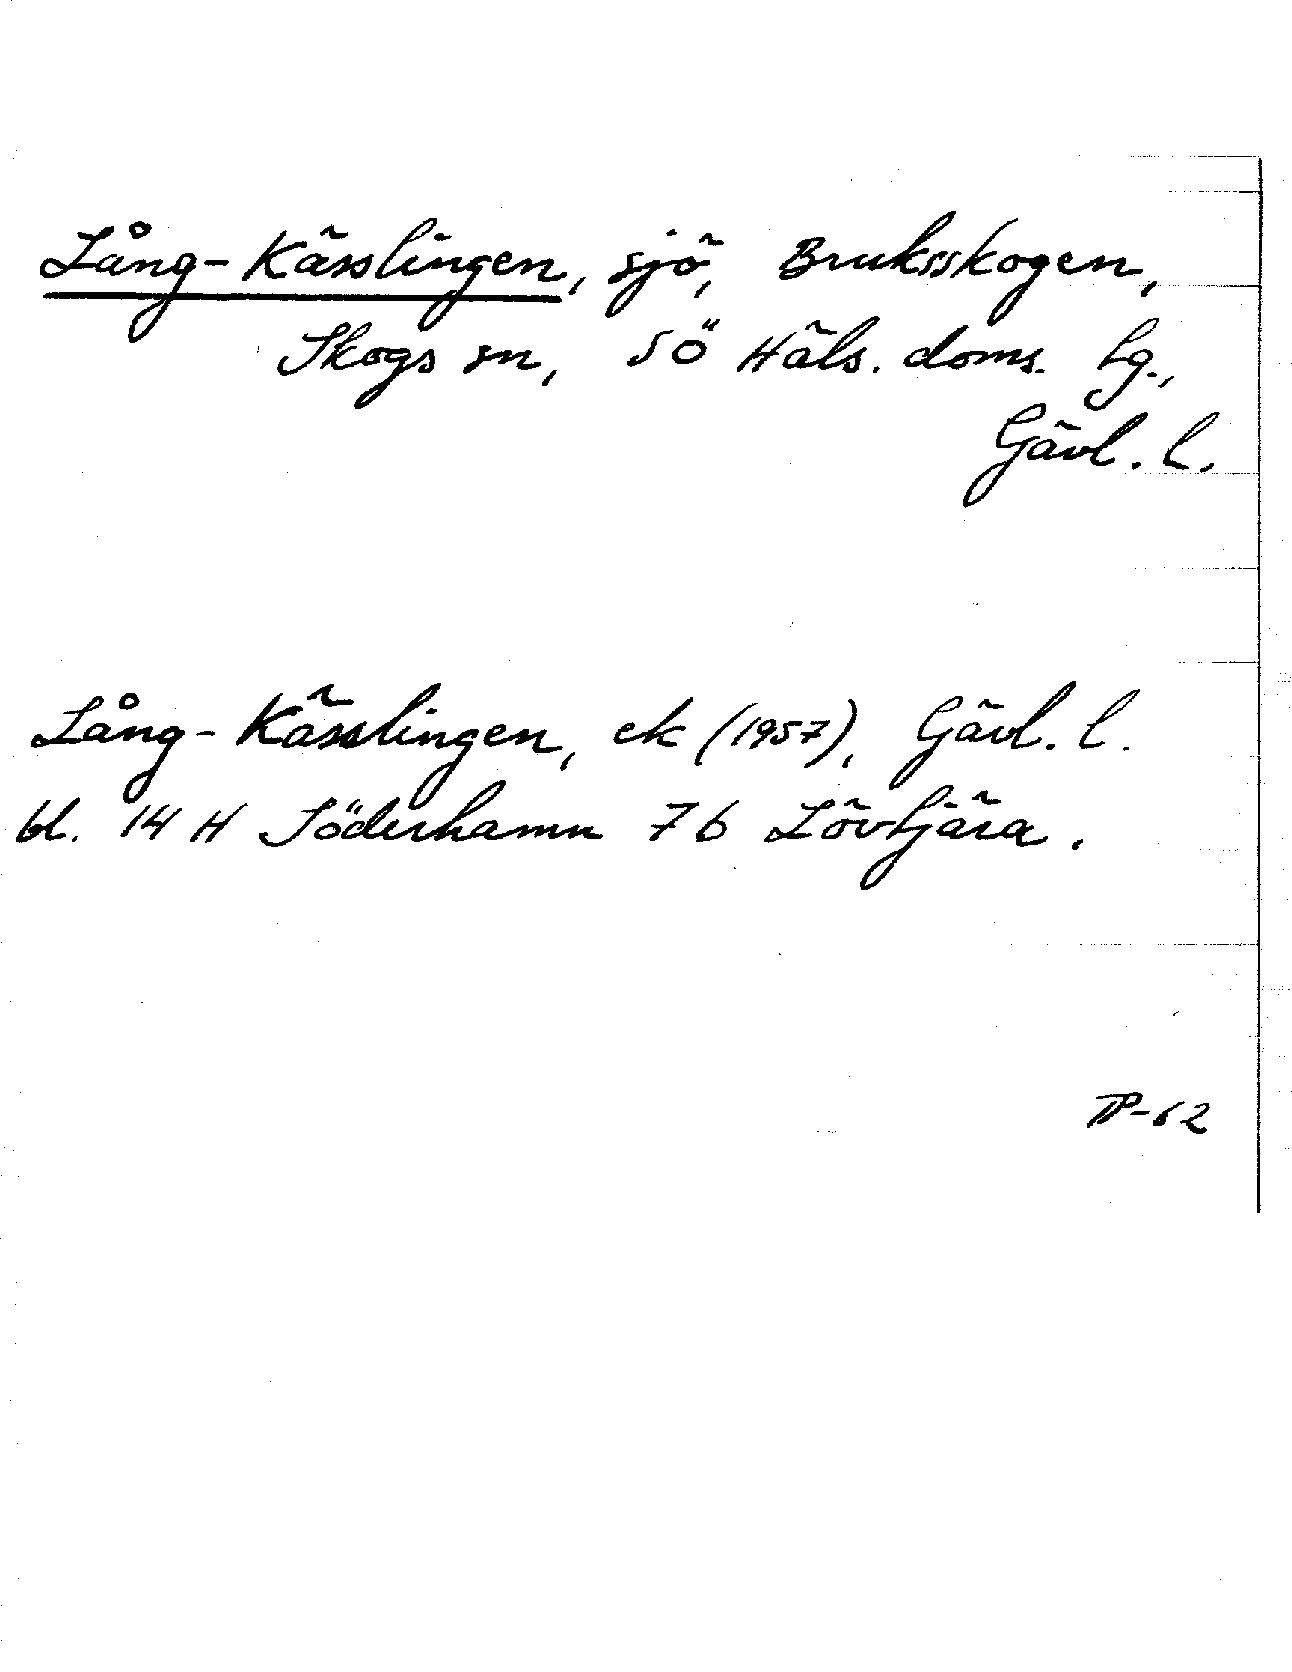 Lång-Kässlingen, sjö, Bruksskogen,
Skogs sn, SÖ Häls. doms. tg.,
Gävl. l.
Lång-Kässlingen, ek (1957), Gävl. l.
bl. 14 H Söderhamn 7b Lövtjära.
TP-62